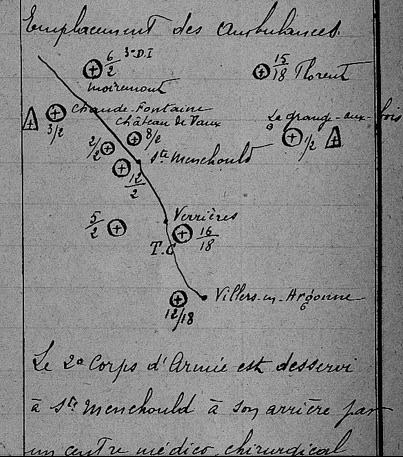 Emplacement des Ambulances.
6/2 3e D.I
Moiremont
15/18 Florent
Chaude-Fontaine
3/2
Château de Vaux
8/2
2/2
La grange-aux-bois
1/2
Ste Menehould
12/2
5/2
Verrières
16/18
T.C
Villers-en-Argonne
12/18
Le 2e Corps d'Armée est desservi
à Ste Menehould à son arrière par
un centre médico chirurgical